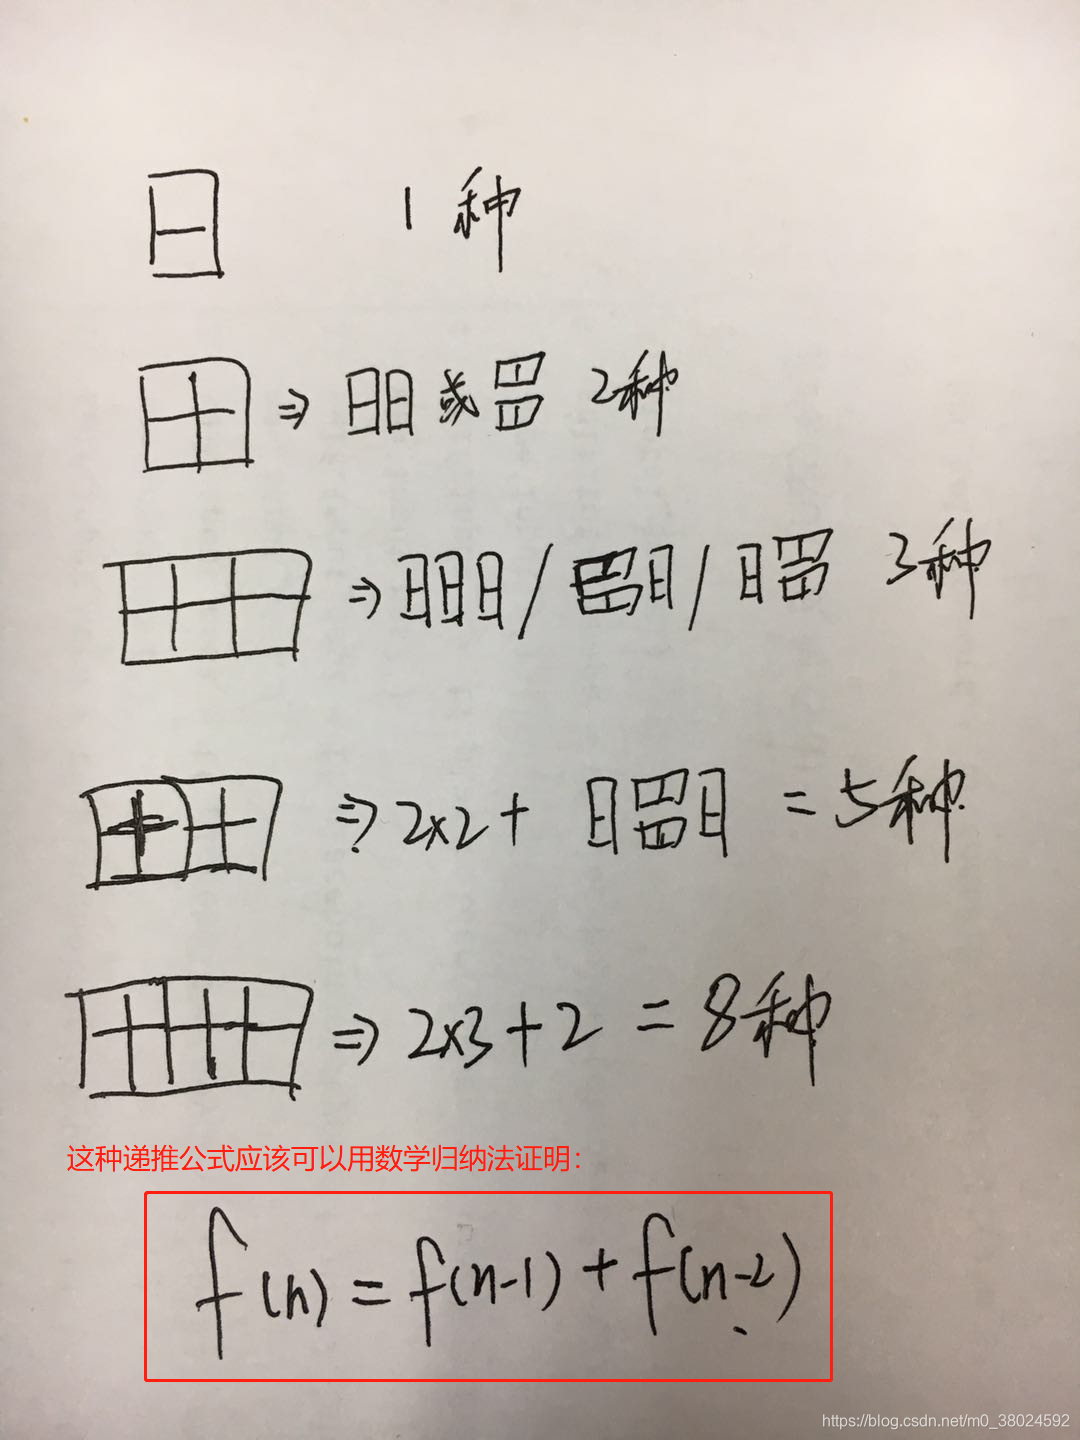 1种
⇒ 或 2种
⇒ / / 3种
⇒ 2x2+ =5种
⇒ 2x3+2 =8种
这种递推公式应该可以用数学归纳法证明：
f(n)=f(n-1)+f(n-2)
https://blog.csdn.net/m0_38024592